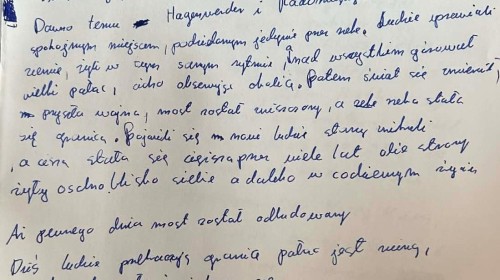 Dawno temu Hagenwerder i Radomierzyce
spokojnym miejscem, podzielonym jedynie przez rzekę. Ludzie uprawiali
ziemię, żyli w tym samym rytmie, a nad wszystkim górował
wielki pałac, cicho obserwując okolicę. Potem świat się zmienił,
przyszła wojna, most został zniszczony, a rzeka stała
się granicą. Pojawili się nowi ludzie, stary
a cisza stała się cięższa przez wiele lat obie strony
żyły osobno blisko siebie a daleko w codziennym życiu
Aż pewnego dnia most został odbudowany
Dziś ludzie przekraczają granicę pałac jest ruiną,